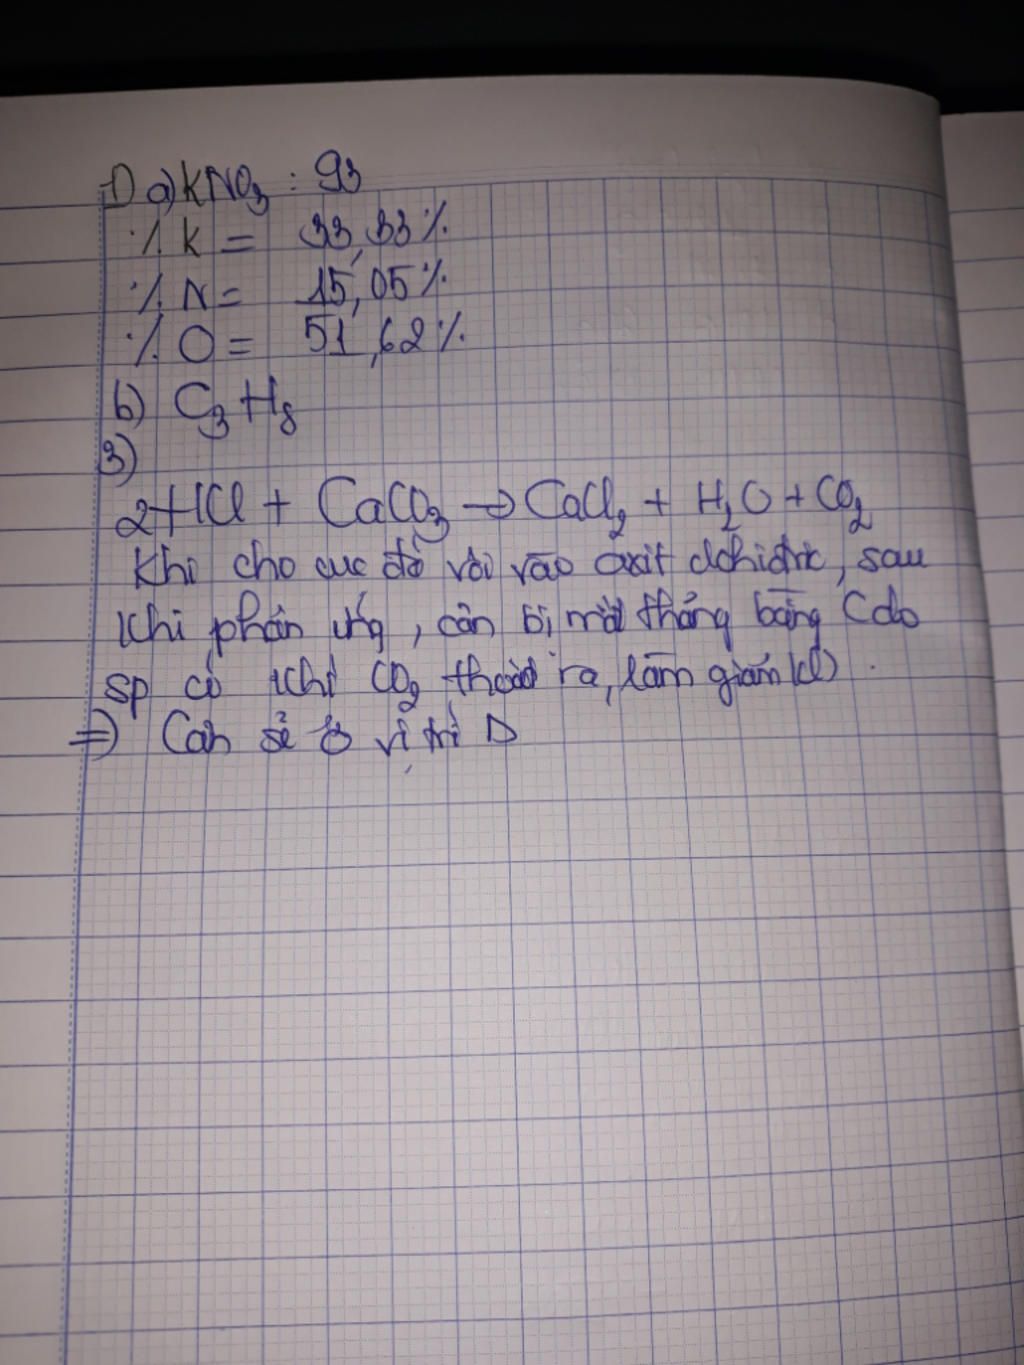 1) a) KNO₃ : 93
% K = 33,33%
% N = 15,05%
% O = 51,62%
b) C₃H₈
3)
2HCl + CaCO₃ → CaCl₂ + H₂O + CO₂
Khi cho cục đá vôi vào axit clohiđric, sau
khi phản ứng, cân bị mất thăng bằng (do
sp có khí CO₂ thoát ra, làm giảm kl).
=> Cân sẽ ở vị trí D